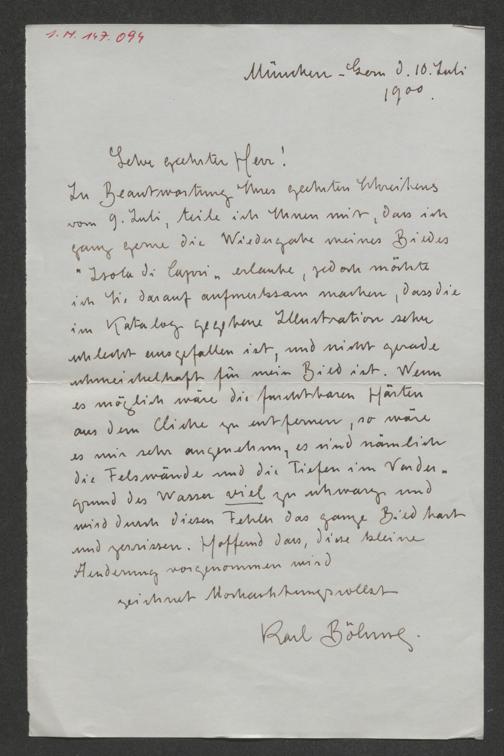 I.N. 147.094
München-Gern d. 10. Juli
1900.
Sehr geehrter Herr!
In Beantwortung Ihres geehrten Schreibens
vom 9. Juli, teile ich Ihnen mit, dass ich
ganz gerne die Wiedergabe meines Bildes
"Isola di Capri" erlaube, jedoch möchte
ich Sie darauf aufmerksam machen, dass die
im Katalog gegebene Illustration sehr
schlecht ausgefallen ist, und nicht gerade
schmeichelhaft für mein Bild ist. Wenn
es möglich wäre die furchtbaren Härten
aus dem Cliche zu entfernen, so wäre
es mir sehr angenehm, es sind nämlich
die Felswände und die Tiefen im Vorder-
grund des Wasser viel zu schwarz und
wird durch diesen Fehler das ganze Bild hart
und zerrissen. Hoffend dass, diese kleine
Aenderung vorgenommen wird
zeichnet Hochachtungsvollst
Karl Böhme.